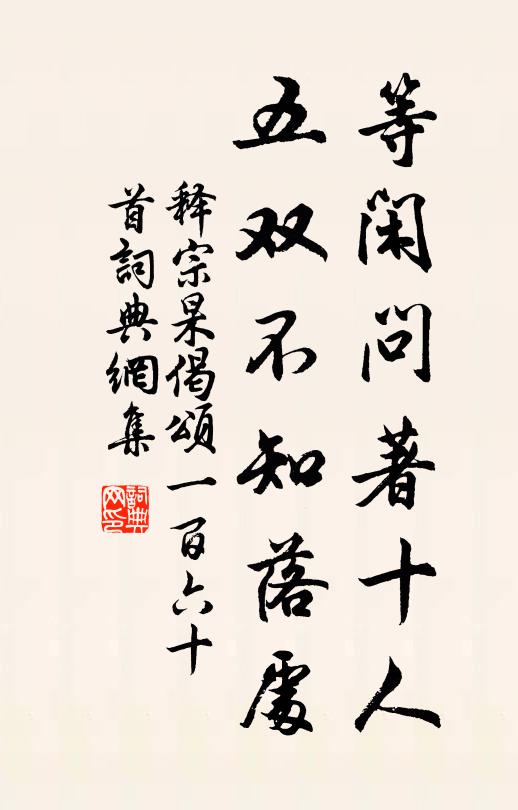 等閑問著十人
五双不知落處
释宗杲偈頌一百六十
首詞典網集
詞典
网印